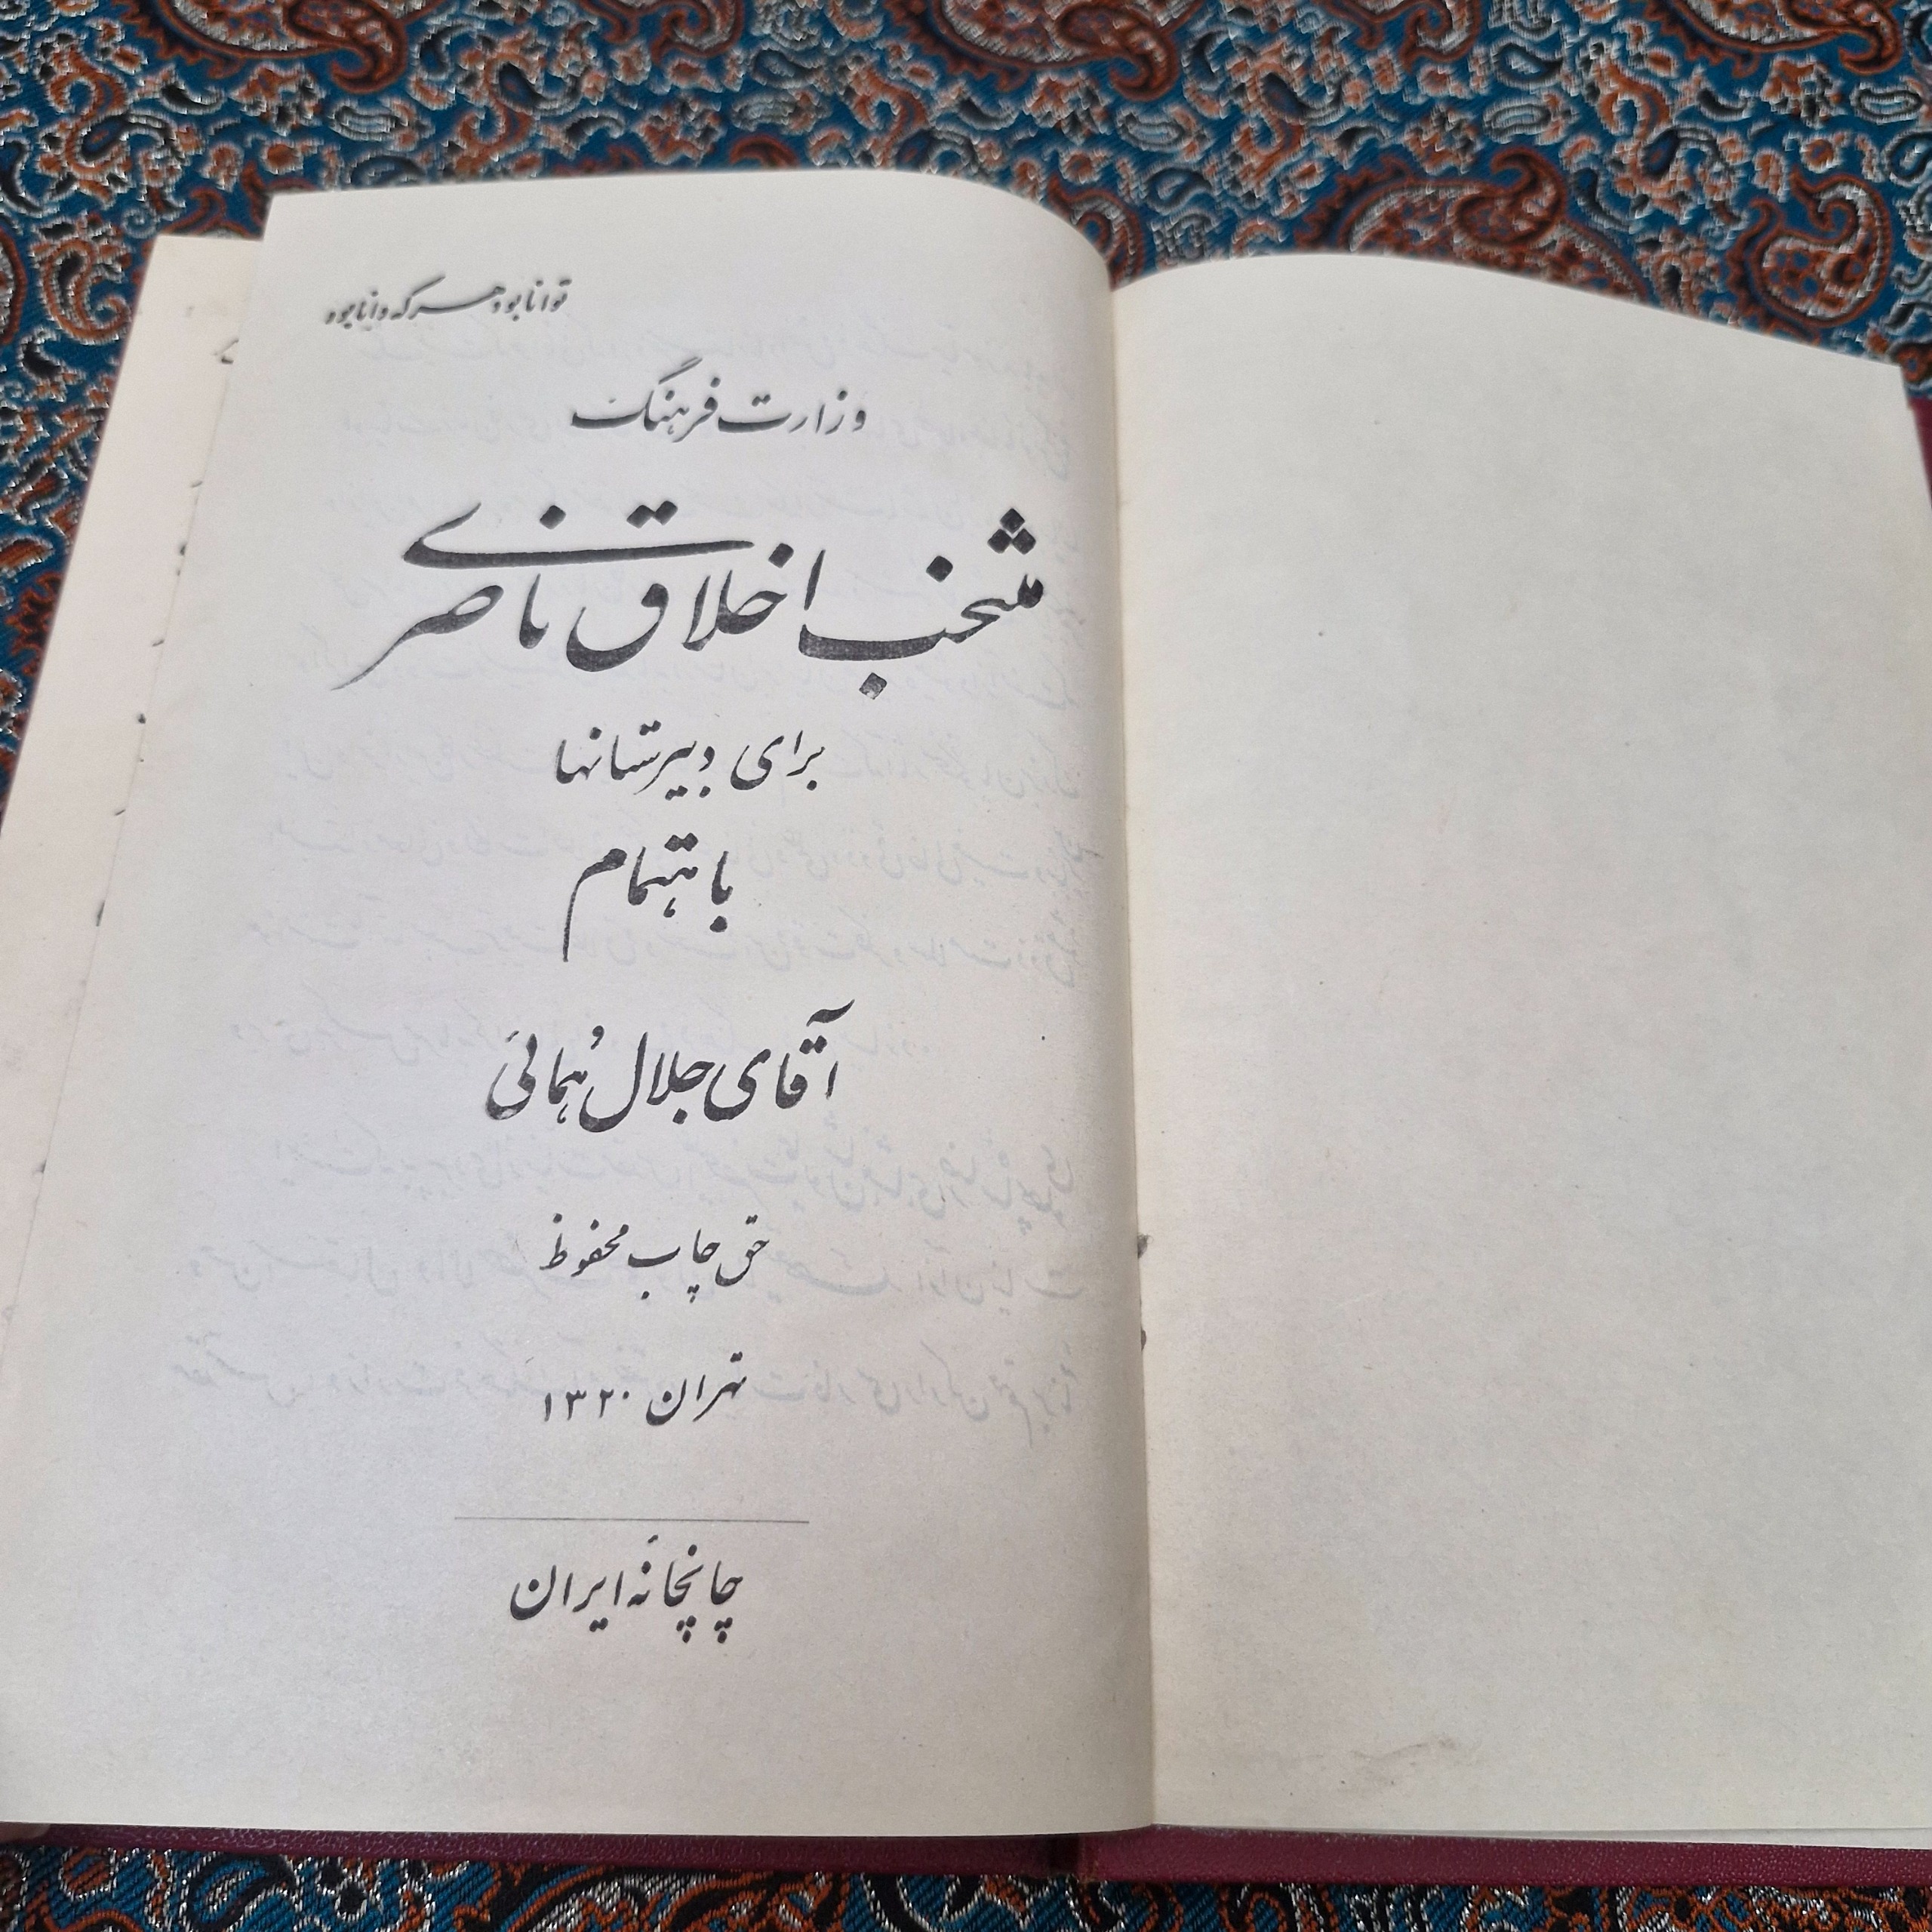 توانا بود هر که دانا بود
وزارت فرهنگ
منتخب اخلاق ناصری
برای دبیرستانها
باهتمام
آقای جلال هُمائی
حق چاپ محفوظ
تهران ۱۳۲۰
چاپخانهٔ ایران